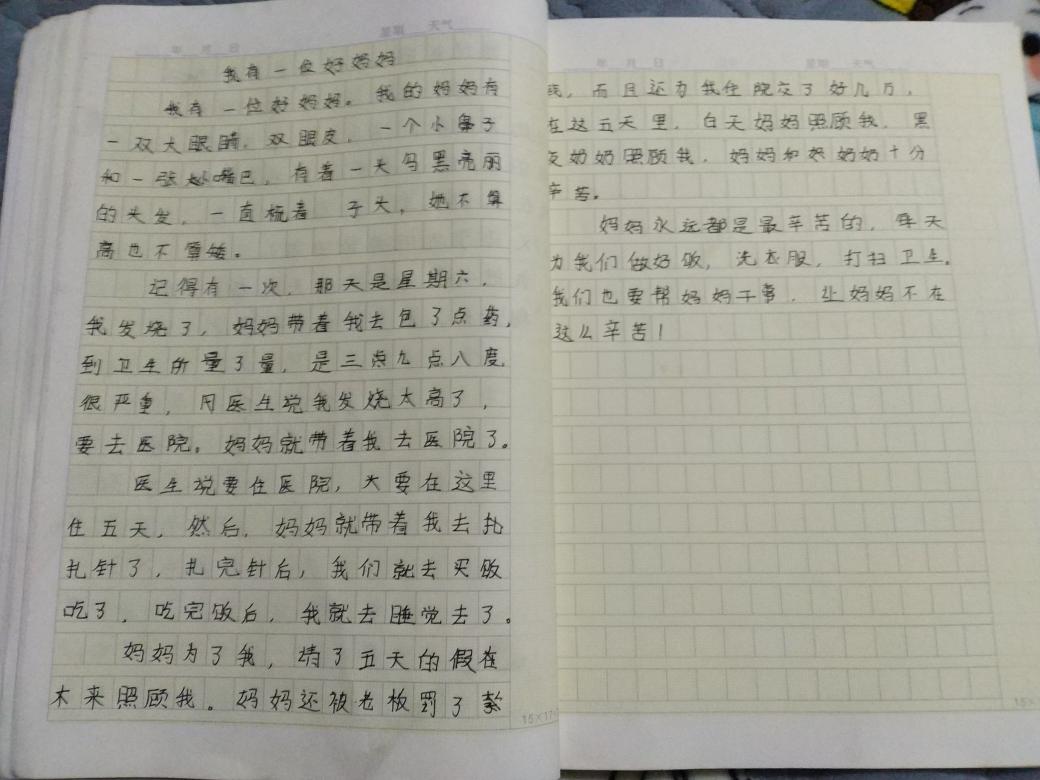 年 月 日 星期 天气
我有一位好妈妈
我有一位好妈妈。我的妈妈有
一双大眼睛，双眼皮，一个小鼻子
和一张嘴巴，有着一头乌黑亮丽
的头发，一直梳着 子头，她不算
高也不算矮。
记得有一次，那天是星期六，
我发烧了，妈妈带着我去包了点药，
到卫生所量了量，是三点九点八度
很严重，医生说我发烧太高了，
要去医院。妈妈就带着我去医院了。
医生说要住医院，大要在这里
住五天，然后，妈妈就带着我去扎
扎针了，扎完针后，我们就去买饭
吃了，吃完饭后，我就去睡觉去了。
妈妈为了我，请了五天的假在
木来照顾我。妈妈还被老板罚了
15×17
年 月 日 星期 天气
钱，而且还为我住院交了好几万，
在这五天里，白天妈妈照顾我，黑
夜奶奶照顾我，妈妈和奶奶十分
辛苦。
妈妈永远都是最辛苦的，每天
为我们做好饭，洗衣服，打扫卫生。
我们也要帮妈妈干事，让妈妈不在
这么辛苦！